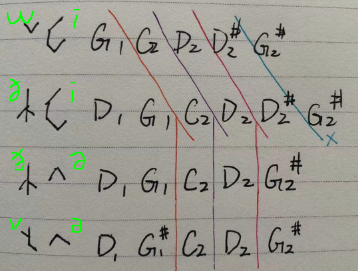 w i G₁ C₂ D₂ D₂# G₂#
i D₁ G₁ C₂ D₂ D₂# G₂# x
D₁ G₁ C₂ D₂ G₂#
v D₁ G₁# C₂ D₂ G₂#